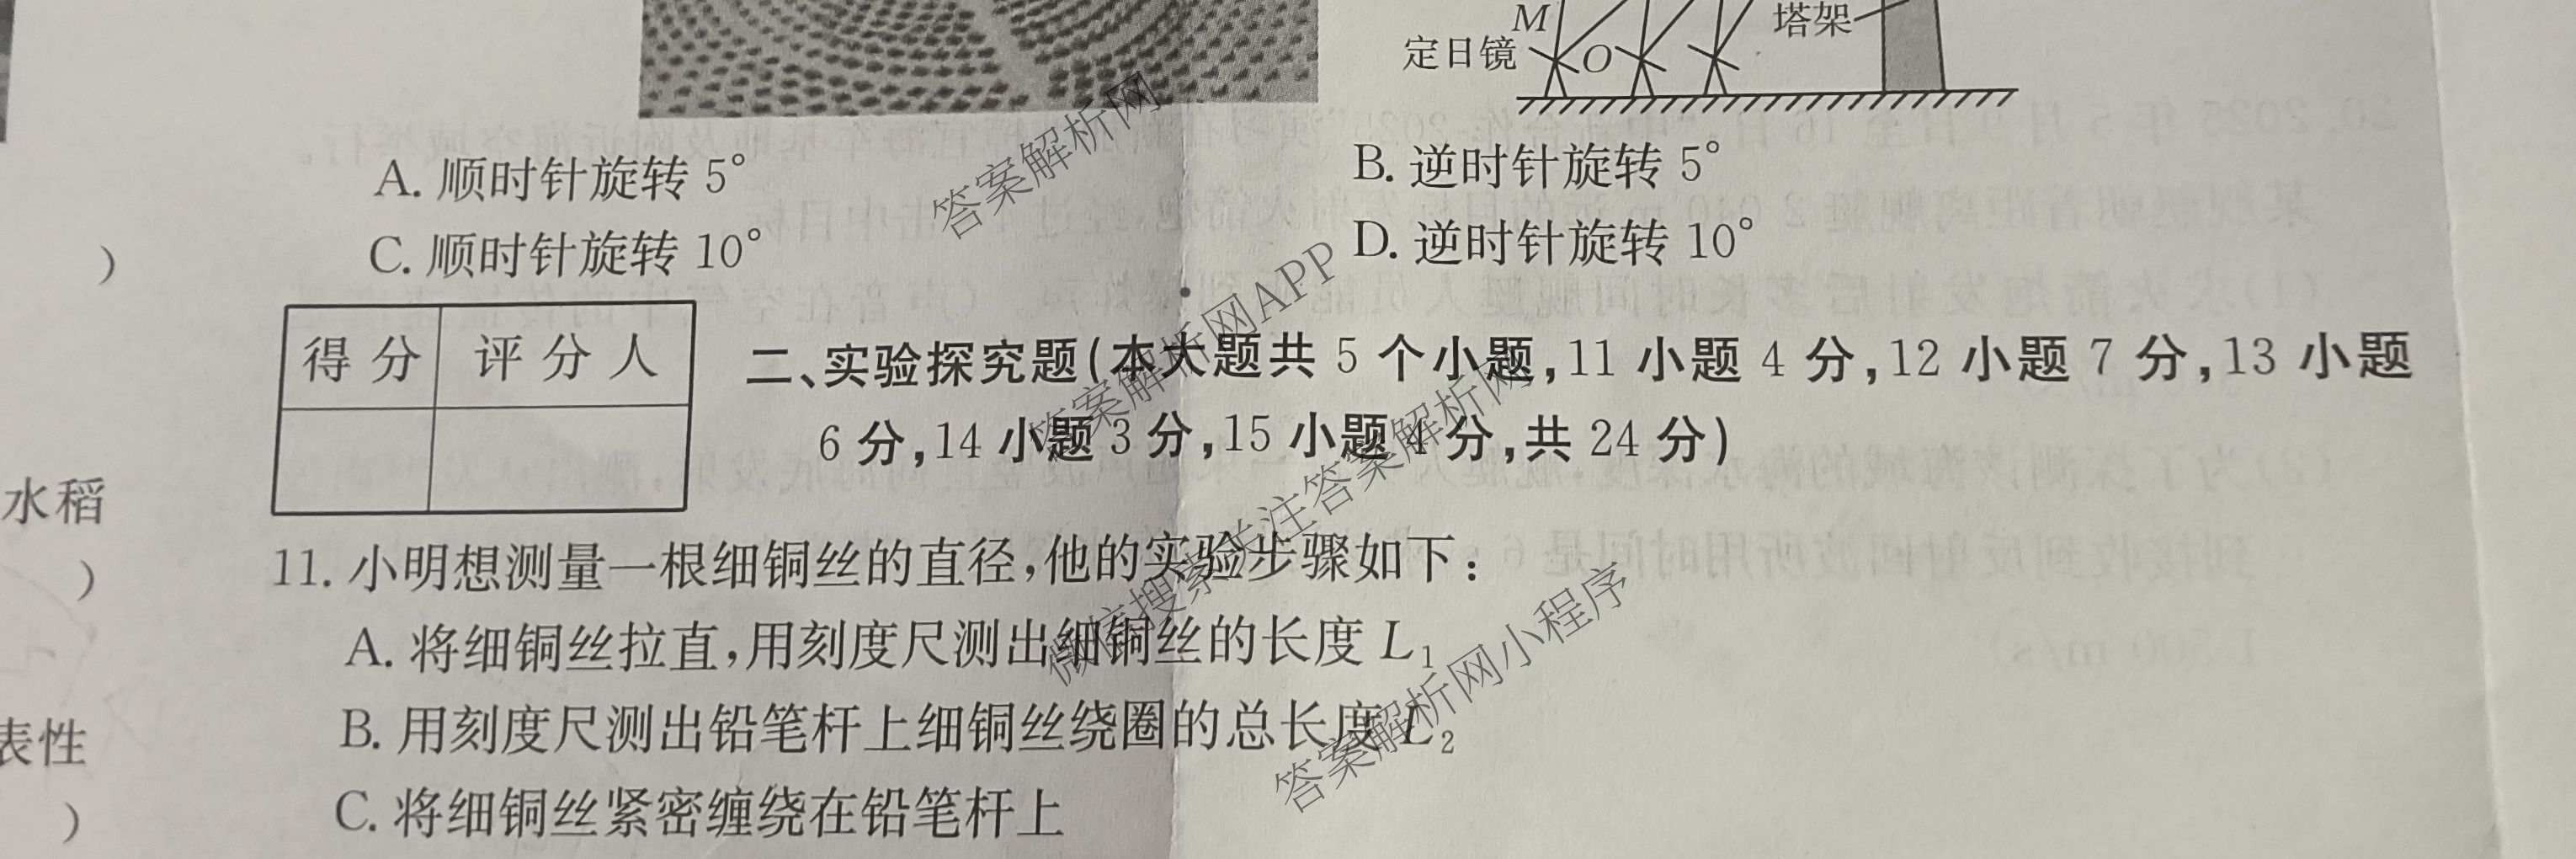 M
塔架
定日镜
O
A. 顺时针旋转 5°
B. 逆时针旋转 5°
C. 顺时针旋转 10°
D. 逆时针旋转 10°
)
得 分 评 分 人
二、实验探究题(本大题共 5 个小题,11 小题 4 分,12 小题 7 分,13 小题
6 分,14 小题 3 分,15 小题 4 分,共 24 分)
水稻
)
11. 小明想测量一根细铜丝的直径,他的实验步骤如下:
A. 将细铜丝拉直,用刻度尺测出细铜丝的长度 L₁
B. 用刻度尺测出铅笔杆上细铜丝绕圈的总长度 L₂
表性
C. 将细铜丝紧密缠绕在铅笔杆上
)
答案解析网
答案解析网APP
微信搜索关注答案解析网
答案解析网小程序